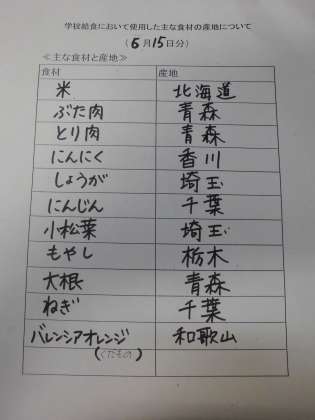 学校給食において使用した主な食材の産地について
(6月15日分)
≪主な食材と産地≫
食材 産地
米 北海道
ぶた肉 青森
とり肉 青森
にんにく 香川
しょうが 埼玉
にんじん 千葉
小松菜 埼玉
もやし 栃木
大根 青森
ねぎ 千葉
バレンシアオレンジ 和歌山
(くだもの)